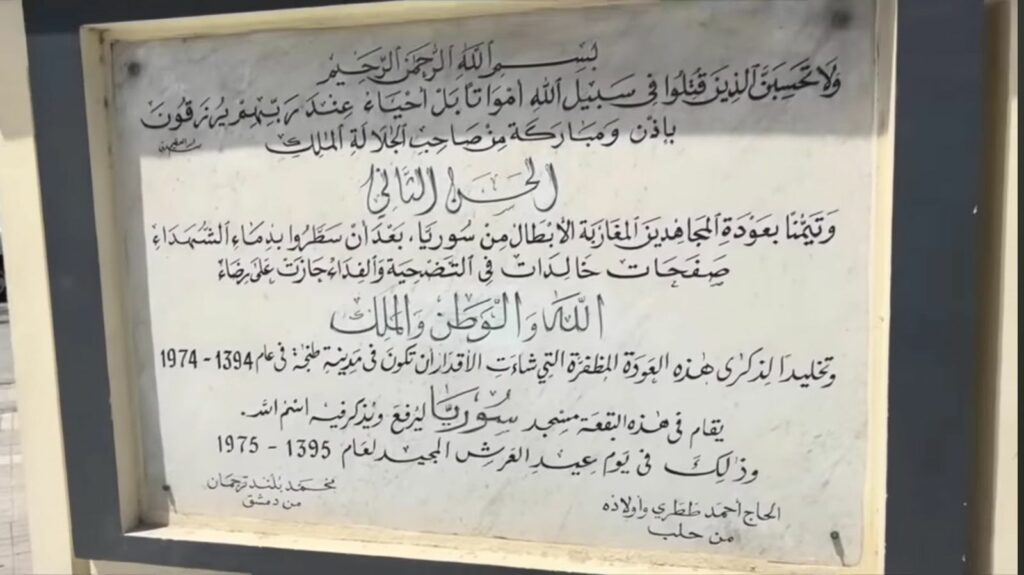 بِسْمِ ٱللَّهِ ٱلرَّحْمَٰنِ ٱلرَّحِيمِ
وَلَا تَحْسَبَنَّ ٱلَّذِينَ قُتِلُوا فِي سَبِيلِ اللَّهِ أَمْوَاتًا بَلْ أَحْيَاءٌ عِنْدَ رَبِّهِمْ يُرْزَقُونَ
بِإِذْنٍ وَمُبَارَكَةٍ مِنْ صَاحِبِ الْجَلَالَةِ الْمَلِكِ
الحَسَنِ الثَّانِي
وَتَيَمُّنًا بِعَوْدَةِ الْمُجَاهِدِينَ الْمَغَارِبَةِ الْأَبْطَالِ مِنْ سُورِيَّا، بَعْدَ أَنْ سَطَّرُوا بِدِمَاءِ الشُّهَدَاءِ
صَفَحَاتٍ خَالِدَاتٍ فِي التَّضْحِيَةِ وَالْفِدَاءِ جَازَتْ عَلَى رِضَاءِ
اللَّهِ وَالْوَطَنِ وَالْمَلِكِ
وتخليدا لِذِكْرَى هٰذِهِ العَوْدَةِ المظفرة التي شاءت الأقدار أن تكون في مدينة طنجة في عام 1394 - 1974
يقام في هذه البقعة مسجد سُورِيَّا ليُرفع ويُذكر فيه اسْمُ الله.
وَذٰلِكَ فِي يَوْمِ عِيدِ العَرْشِ المجيد لعام 1395 - 1975
محمد بلند ترجمان
من دمشق
الحاج أحمد ظظري وأولاده
من حلب